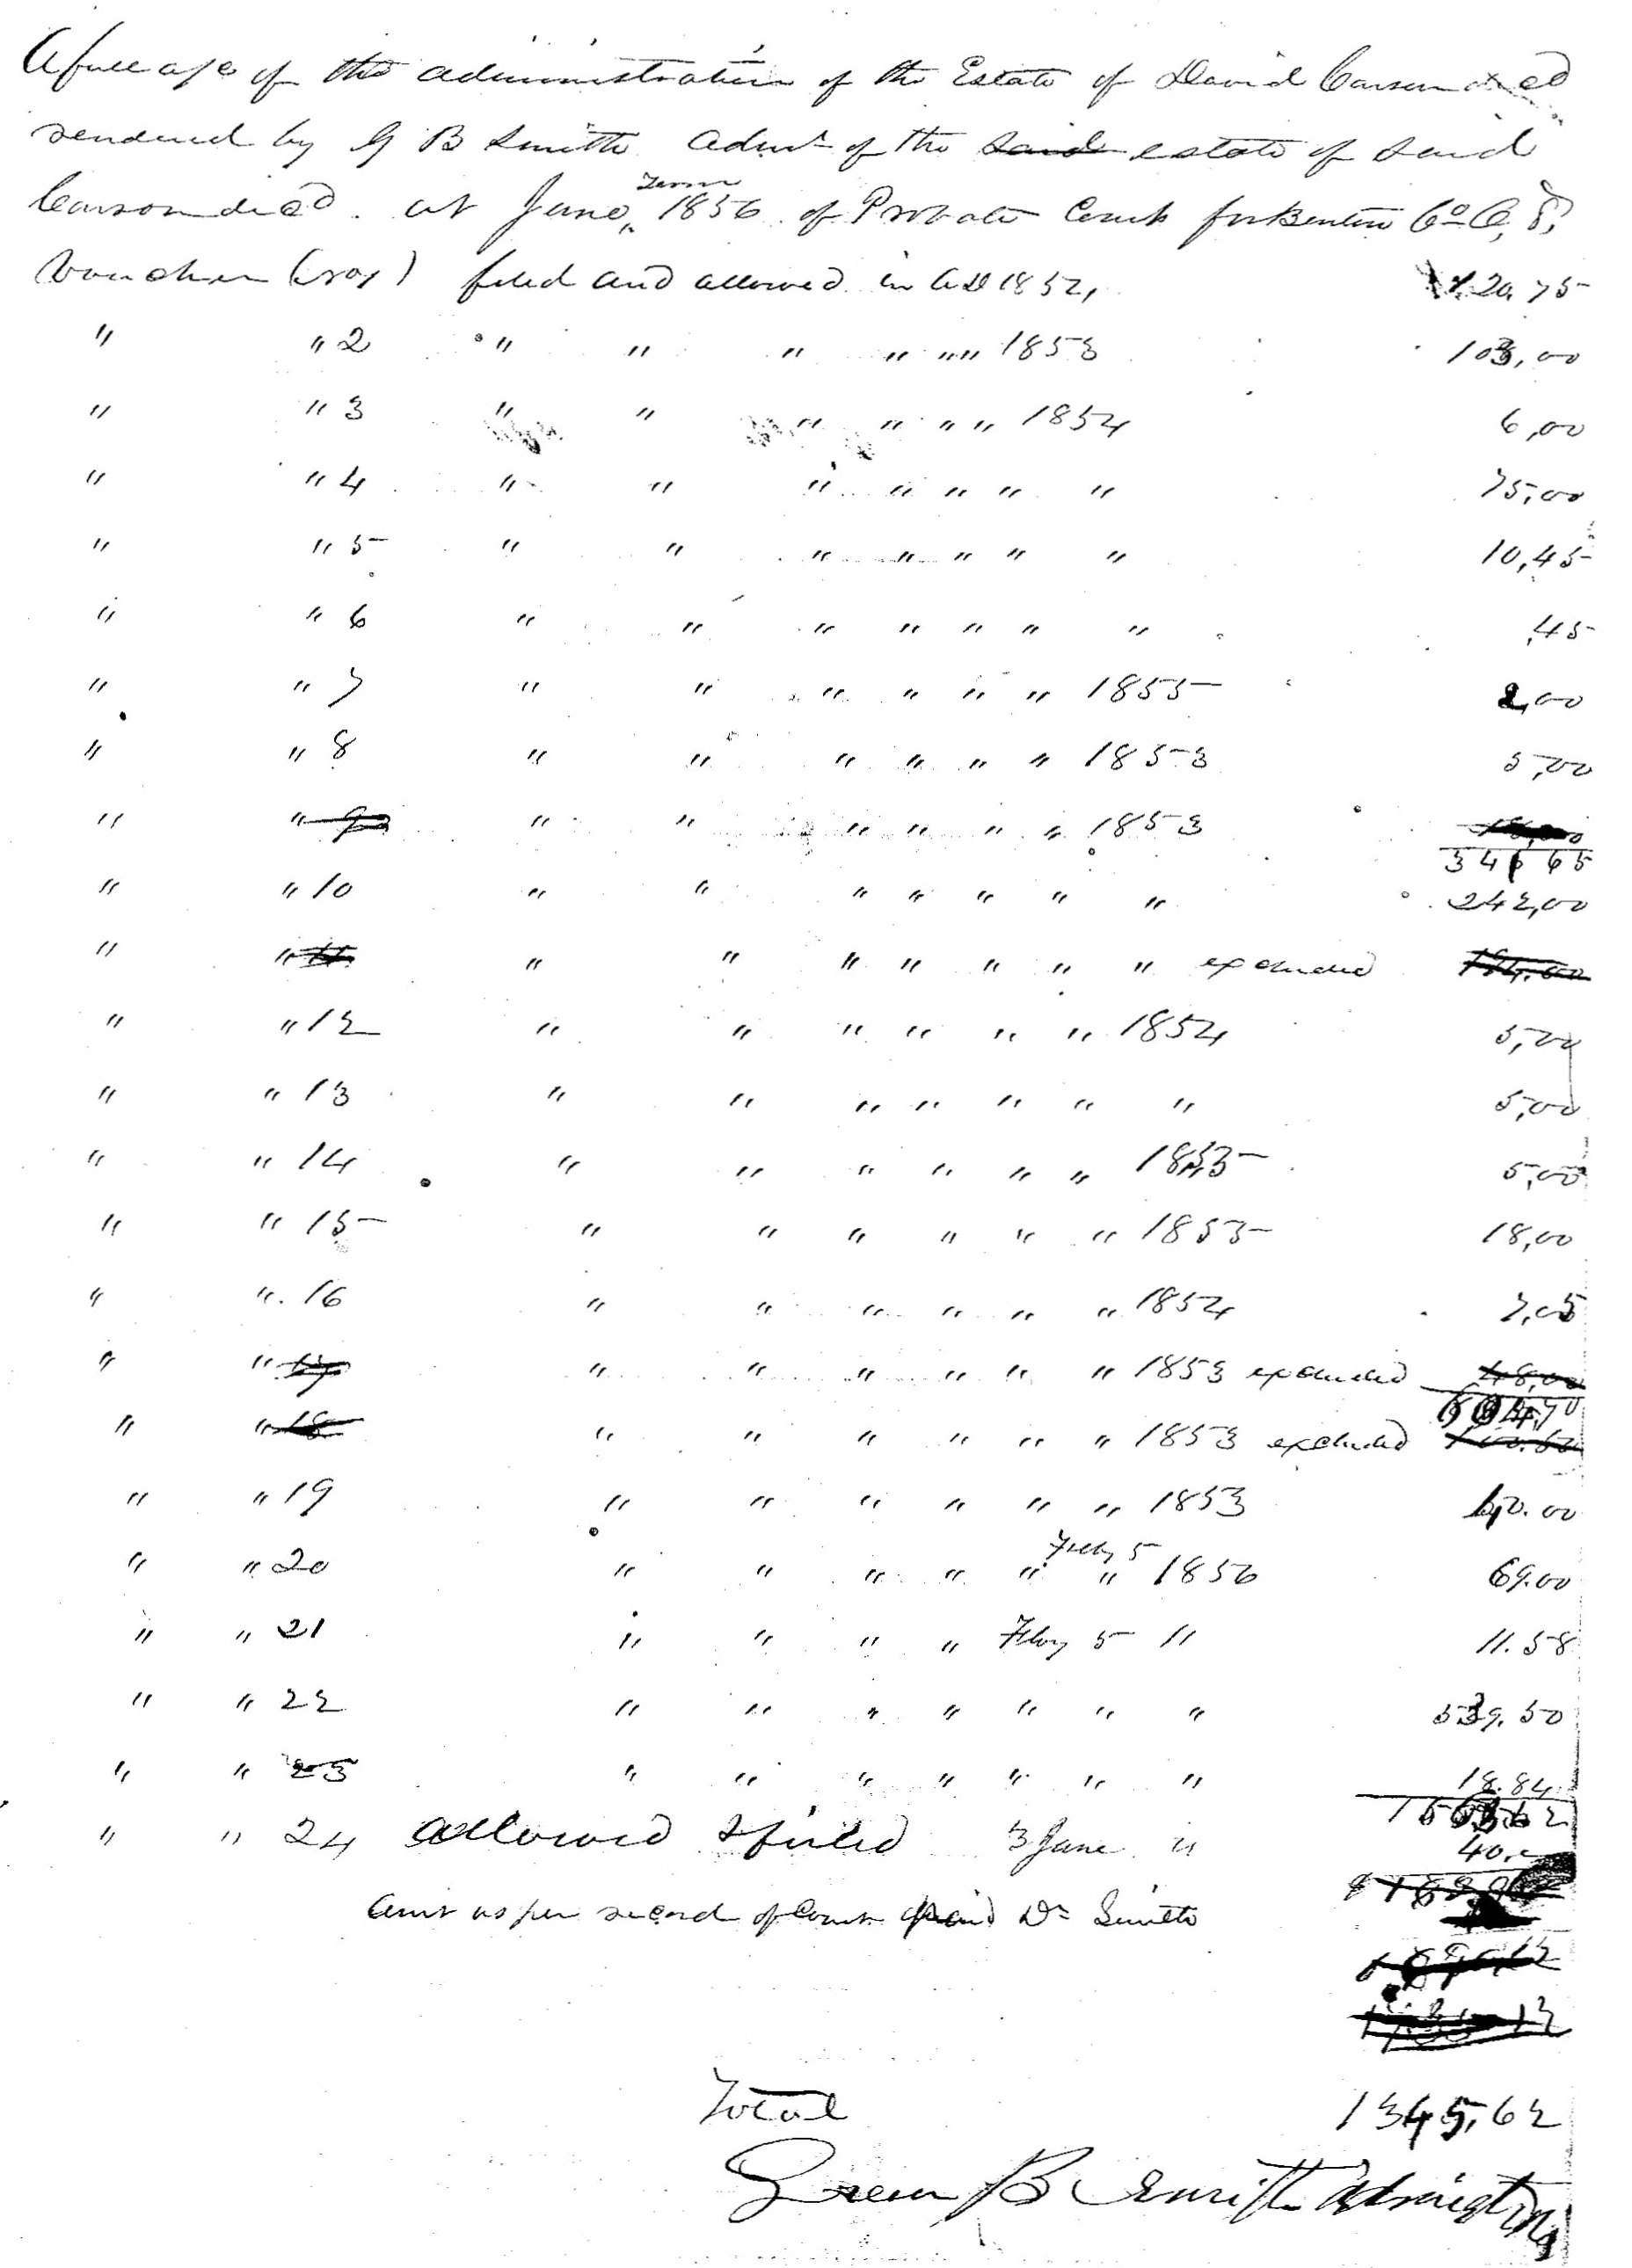 A full a/c of the administration of the Estate of David Carson decd
rendered by G B Smith Admr of the said estate of said
Carson decd. at June Term 1856 of Probate Court for Benton Co O. T.
Voucher (No 1) filed and allowed in AD 1852, 120,75
" " 2 " " " " "" 1853 103,00
" " 3 " " " " " " 1854 6,00
" " 4 " " " " " " " 75,00
" " 5 " " " " " " " 10,45
" " 6 " " " " " " " ,45
" " 7 " " " " " " 1855 2,00
" " 8 " " " " " " 1853 5,00
" " 9 " " " " " " 1853
34 65
" " 10 " " " " " " " 242,00
" " 11 " " " " " " " excluded
" " 12 " " " " " " 1854 5,00
" " 13 " " " " " " " 5,00
" " 14 " " " " " " 5,00
" " 15 " " " " " " 1853 18,00
" " 16 " " " " " " 1854 7,05
" " 17 " " " " " " 1853 excluded 48,00
" " 18 " " " " " " 1853 excluded
" " 19 " " " " " " 1853
" " 20 " " " " " Feby 5 " 1856 69.00
" " 21 " " " " Feby 5 " 11.58
" " 22 " " " " " " " 539.50
" " 23 " " " " " " " 18.84
" " 24 allowed & filed 3 June " 40.
Amt as per record of Court paid Dr Smith
Total 1345,62
Green B Smith Administrator